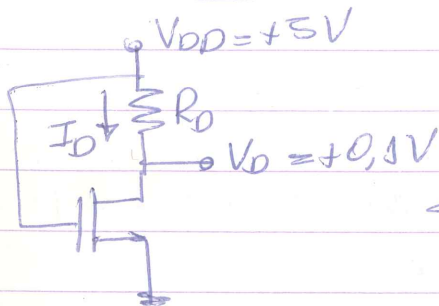 V_DD = +5V
I_D
R_D
V_D = +0,1V